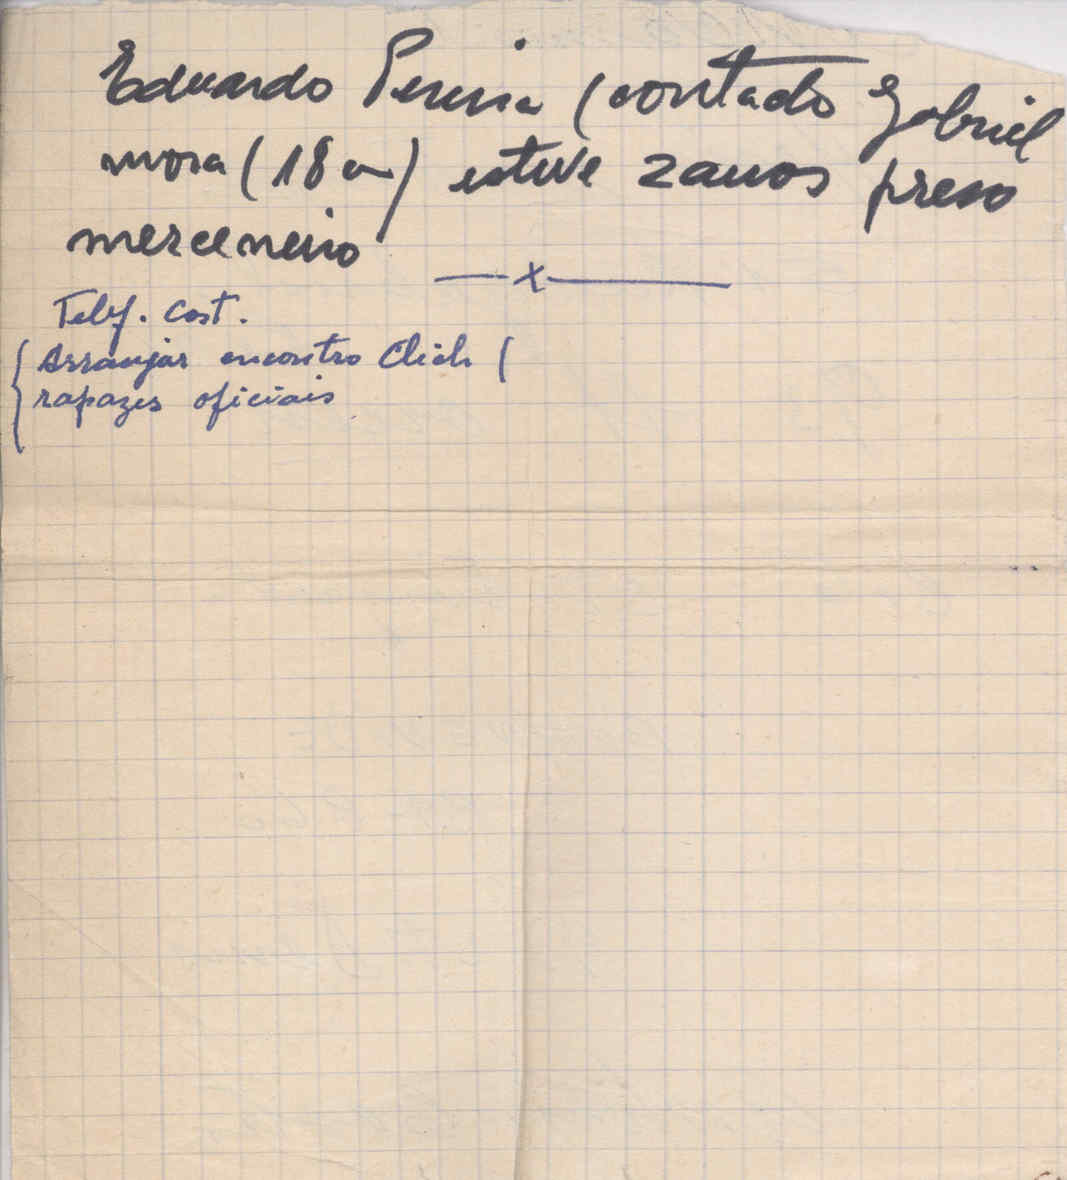 Eduardo Pereira (contado Gabriel
mora (18 a) esteve 2 anos preso
merceneiro
—x—
Telef. Cost.
Arranjar encontro Clich (
rapazes oficiais